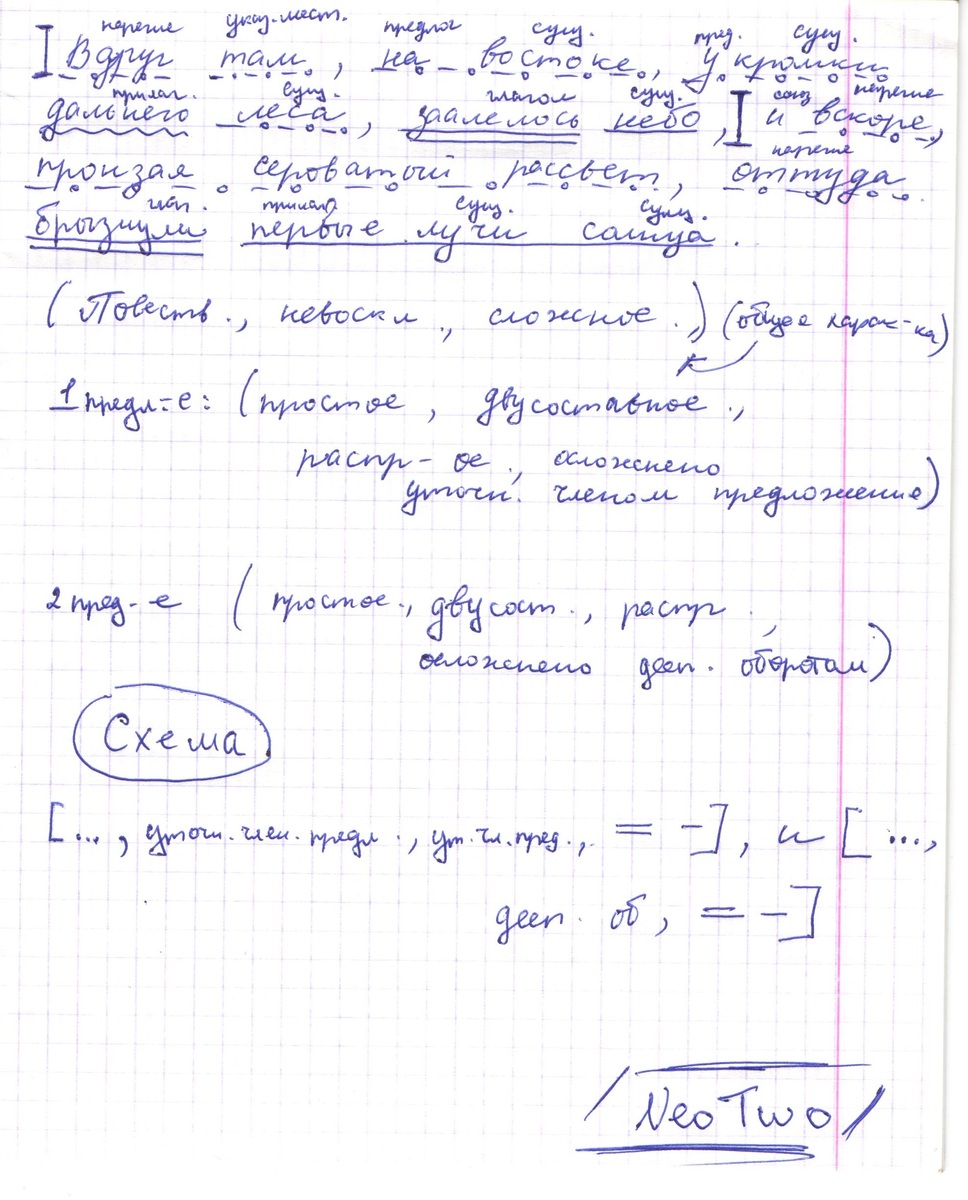 нареч указ. мест. предлог сущ. пред. сущ.
Вдруг там, на востоке, у кромки
прилаг. сущ. глагол сущ. союз наречие
дальнего леса, заалелось небо, и вскоре,
наречие
пронзая сероватый рассвет, оттуда
глаг. прилаг сущ. сущ.
брызнули первые лучи солнца.
(Повеств., невоскл., сложное.,) (общее харак-ка)
1 предл-е: (простое, двусоставное.,
распр-ое., осложнено
уточн. членом предложение)
2 пред-е (простое., двусост., распр.,
осложнено дееп. оборотам)
Схема
[..., уточн. член. предл., ут. чл. пред., = -], и [...,
дееп. об, = -]
/NeoTwo/